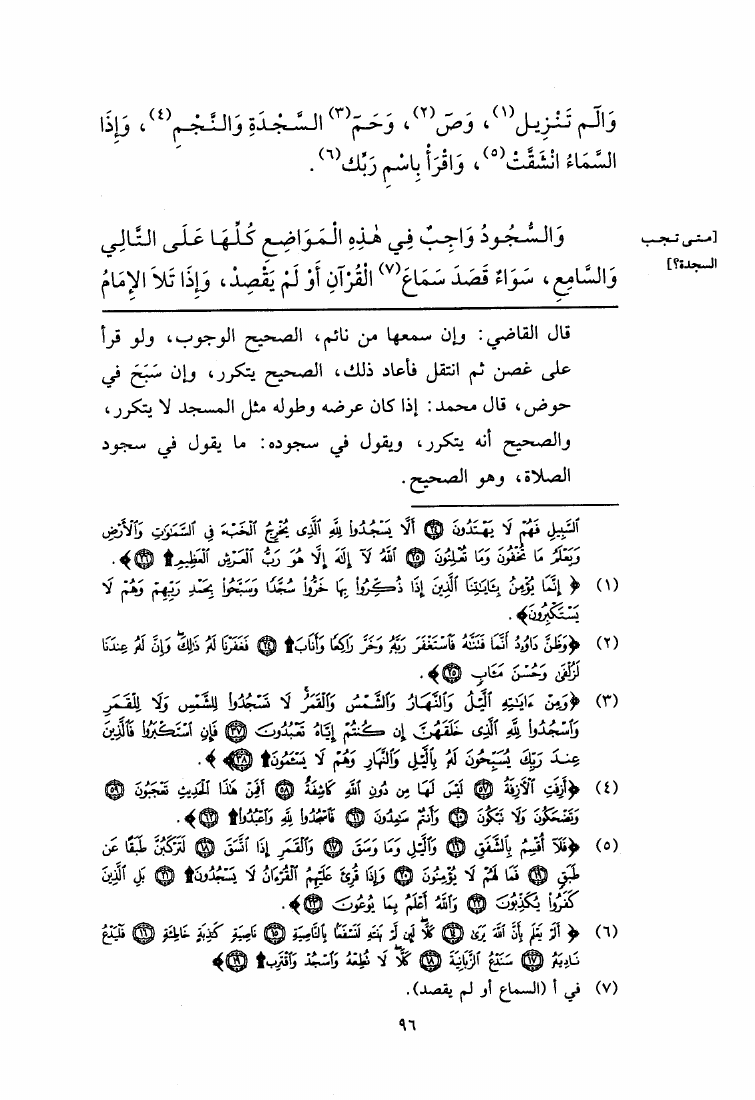 وَالٓم تَنْزِيل(١)، وَصٓ(٢)، وَحَمٓ(٣) السَّجْدَةِ وَالنَّجْمِ(٤)، وَإِذَا
السَّمَاءُ انْشَقَّتْ(٥)، وَاقْرَأْ بِاسْمِ رَبِّكَ(٦).
وَالسُّجُودُ وَاجِبٌ فِي هٰذِهِ الْمَوَاضِعِ كُلِّهَا عَلَى التَّالِي
[متى تجب
السجدة؟]
وَالسَّامِعِ، سَوَاءٌ قَصَدَ سَمَاعَ(٧) الْقُرْآنِ أَوْ لَمْ يَقْصِدْ، وَإِذَا تَلاَ الإِمَامُ
قال القاضي: وإن سمعها من نائم، الصحيح الوجوب، ولو قرأ
على غصن ثم انتقل فأعاد ذلك، الصحيح يتكرر، وإن سَبَحَ في
حوض، قال محمد: إذا كان عرضه وطوله مثل المسجد لا يتكرر،
والصحيح أنه يتكرر، ويقول في سجوده: ما يقول في سجود
الصلاة، وهو الصحيح.
السَّبِيلِ فَهُمْ لَا يَهْتَدُونَ ﴿٢٤﴾ أَلَّا يَسْجُدُوا لِلَّهِ الَّذِي يُخْرِجُ الْخَبْءَ فِي السَّمَٰوَٰتِ وَالْأَرْضِ
وَيَعْلَمُ مَا تُخْفُونَ وَمَا تُعْلِنُونَ ﴿٢٥﴾ اللَّهُ لَا إِلَٰهَ إِلَّا هُوَ رَبُّ الْعَرْشِ الْعَظِيمِ۩ ﴿٢٦﴾﴾.
(١) ﴿ إِنَّمَا يُؤْمِنُ بِـَٔايَٰتِنَا الَّذِينَ إِذَا ذُكِّرُوا بِهَا خَرُّوا سُجَّدًا وَسَبَّحُوا بِحَمْدِ رَبِّهِمْ وَهُمْ لَا
يَسْتَكْبِرُونَ﴾.
(٢) ﴿وَظَنَّ دَاوُدُ أَنَّمَا فَتَنَّٰهُ فَاسْتَغْفَرَ رَبَّهُ وَخَرَّ رَاكِعًا وَأَنَابَ۩ ﴿٢٤﴾ فَغَفَرْنَا لَهُ ذَٰلِكَ وَإِنَّ لَهُ عِندَنَا
لَزُلْفَىٰ وَحُسْنَ مَـَٔابٍ ﴿٢٥﴾﴾.
(٣) ﴿وَمِنْ ءَايَٰتِهِ الَّيْلُ وَالنَّهَارُ وَالشَّمْسُ وَالْقَمَرُ لَا تَسْجُدُوا لِلشَّمْسِ وَلَا لِلْقَمَرِ
وَاسْجُدُوا لِلَّهِ الَّذِي خَلَقَهُنَّ إِن كُنتُمْ إِيَّاهُ تَعْبُدُونَ ﴿٣٧﴾ فَإِنِ اسْتَكْبَرُوا فَالَّذِينَ
عِندَ رَبِّكَ يُسَبِّحُونَ لَهُ بِالَّيْلِ وَالنَّهَارِ وَهُمْ لَا يَسْـَٔمُونَ۩ ﴿٣٨﴾﴾.
(٤) ﴿أَزِفَتِ الْآزِفَةُ ﴿٥٧﴾ لَيْسَ لَهَا مِن دُونِ اللَّهِ كَاشِفَةٌ ﴿٥٨﴾ أَفَمِنْ هَٰذَا الْحَدِيثِ تَعْجَبُونَ ﴿٥٩﴾
وَتَضْحَكُونَ وَلَا تَبْكُونَ ﴿٦٠﴾ وَأَنتُمْ سَٰمِدُونَ ﴿٦١﴾ فَاسْجُدُوا لِلَّهِ وَاعْبُدُوا۩ ﴿٦٢﴾﴾.
(٥) ﴿فَلَا أُقْسِمُ بِالشَّفَقِ ﴿١٦﴾ وَالَّيْلِ وَمَا وَسَقَ ﴿١٧﴾ وَالْقَمَرِ إِذَا اتَّسَقَ ﴿١٨﴾ لَتَرْكَبُنَّ طَبَقًا عَن
طَبَقٍ ﴿١٩﴾ فَمَا لَهُمْ لَا يُؤْمِنُونَ ﴿٢٠﴾ وَإِذَا قُرِئَ عَلَيْهِمُ الْقُرْءَانُ لَا يَسْجُدُونَ۩ ﴿٢١﴾ بَلِ الَّذِينَ
كَفَرُوا يُكَذِّبُونَ ﴿٢٢﴾ وَاللَّهُ أَعْلَمُ بِمَا يُوعُونَ ﴿٢٣﴾﴾.
(٦) ﴿ أَلَمْ يَعْلَم بِأَنَّ اللَّهَ يَرَىٰ ﴿١٤﴾ كَلَّا لَئِن لَّمْ يَنتَهِ لَنَسْفَعًا بِالنَّاصِيَةِ ﴿١٥﴾ نَاصِيَةٍ كَٰذِبَةٍ خَاطِئَةٍ ﴿١٦﴾ فَلْيَدْعُ
نَادِيَهُ ﴿١٧﴾ سَنَدْعُ الزَّبَانِيَةَ ﴿١٨﴾ كَلَّا لَا تُطِعْهُ وَاسْجُدْ وَاقْتَرِب۩ ﴿١٩﴾﴾
(٧) في أ (السماع أو لم يقصد).
٩٦